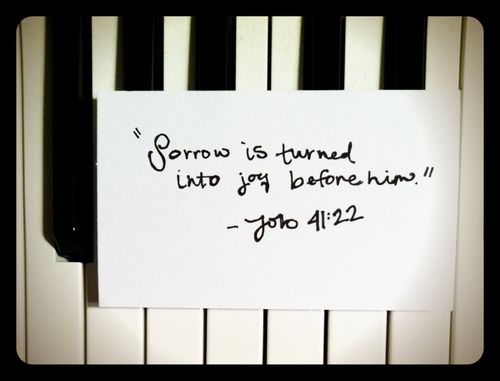 "Sorrow is turned
into joy before him."
- Job 41:22